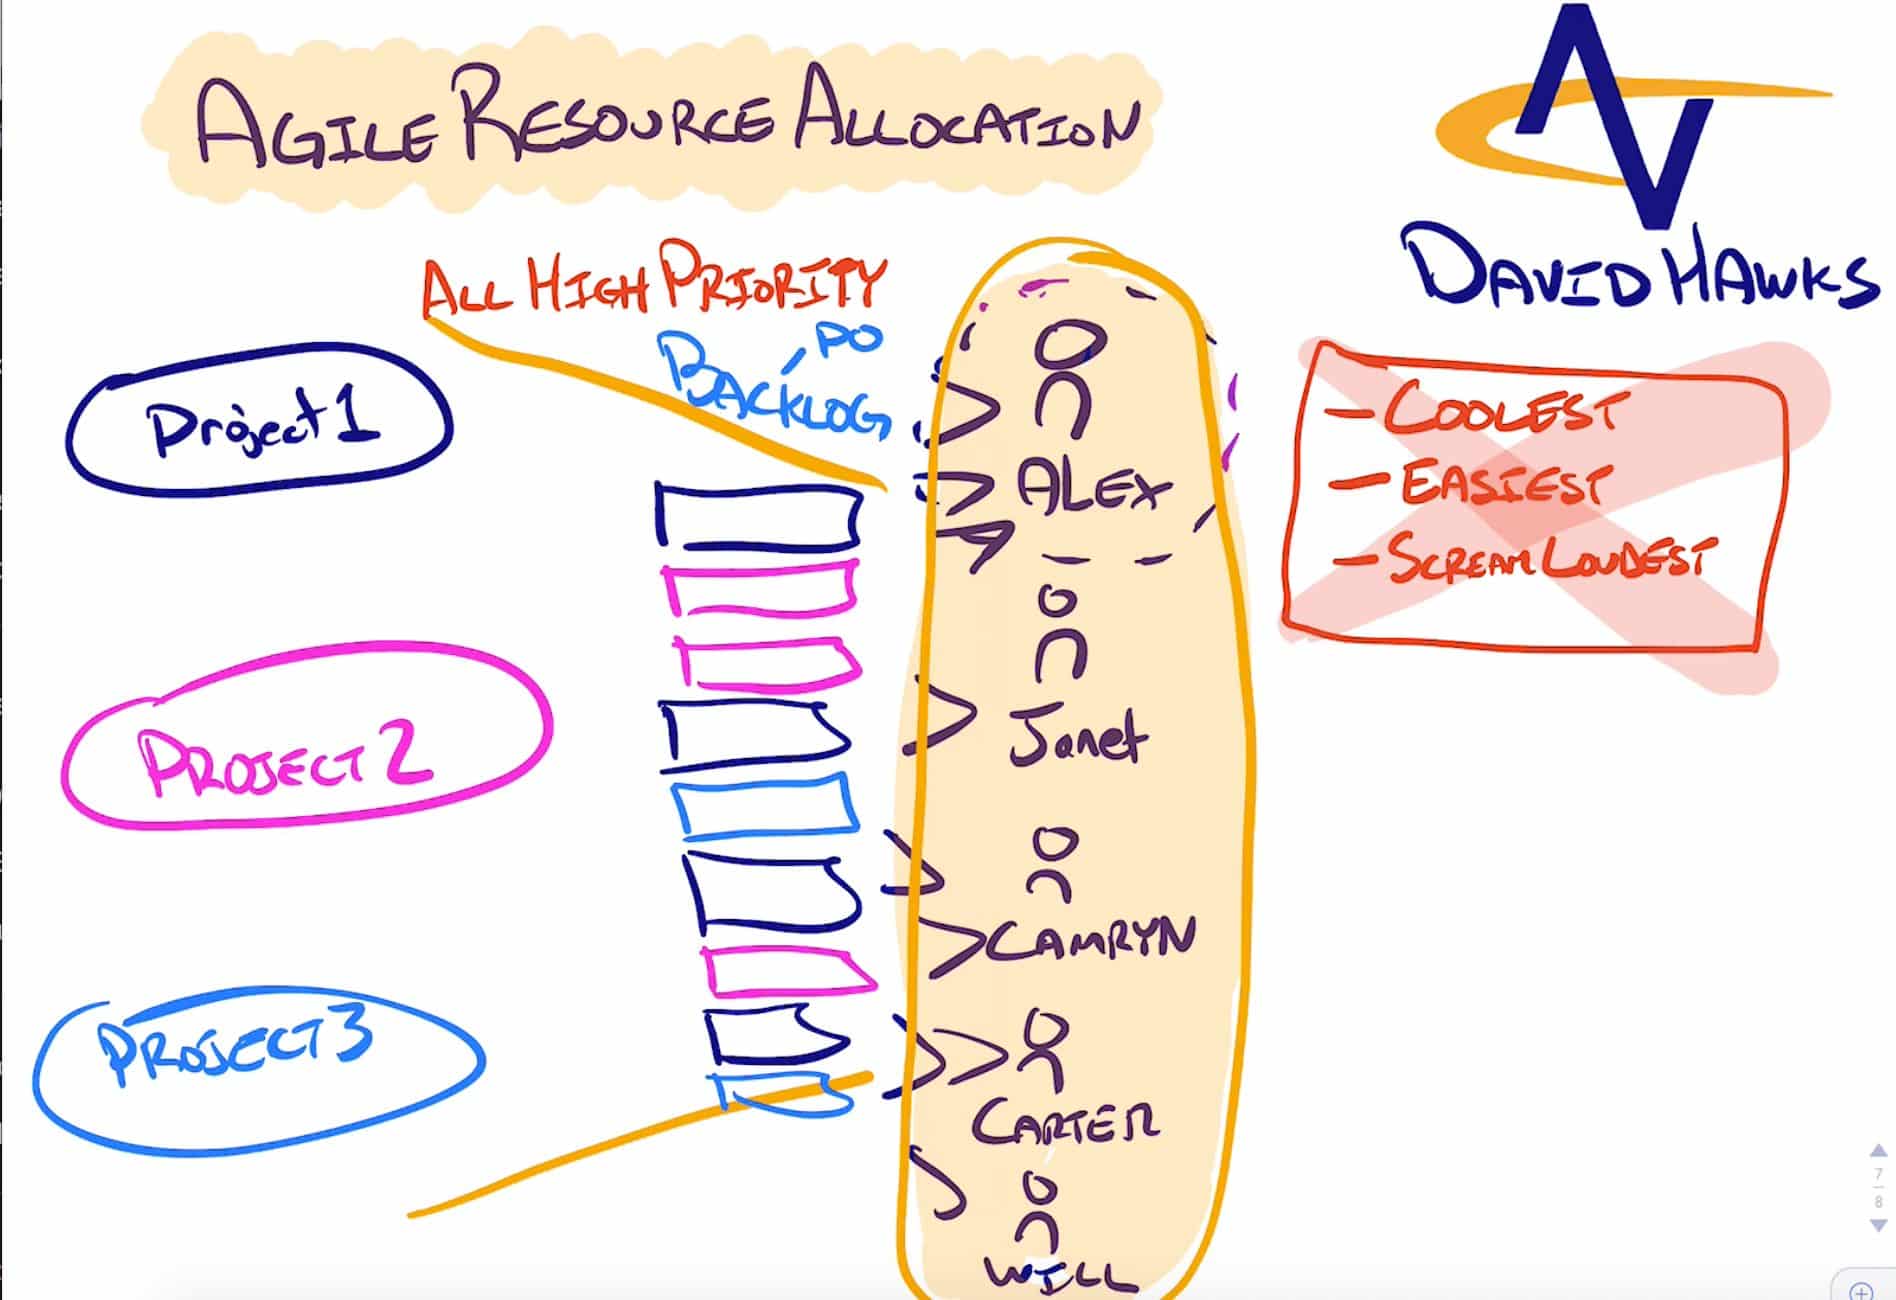 AGILE RESOURCE ALLOCATION
DAVID HAWKS
ALL HIGH PRIORITY
PO
BACKLOG
Project 1
PROJECT 2
PROJECT 3
ALEX
Janet
CAMRYN
CARTER
WILL
- COOLEST
- EASIEST
- SCREAM LOUDEST
7
8